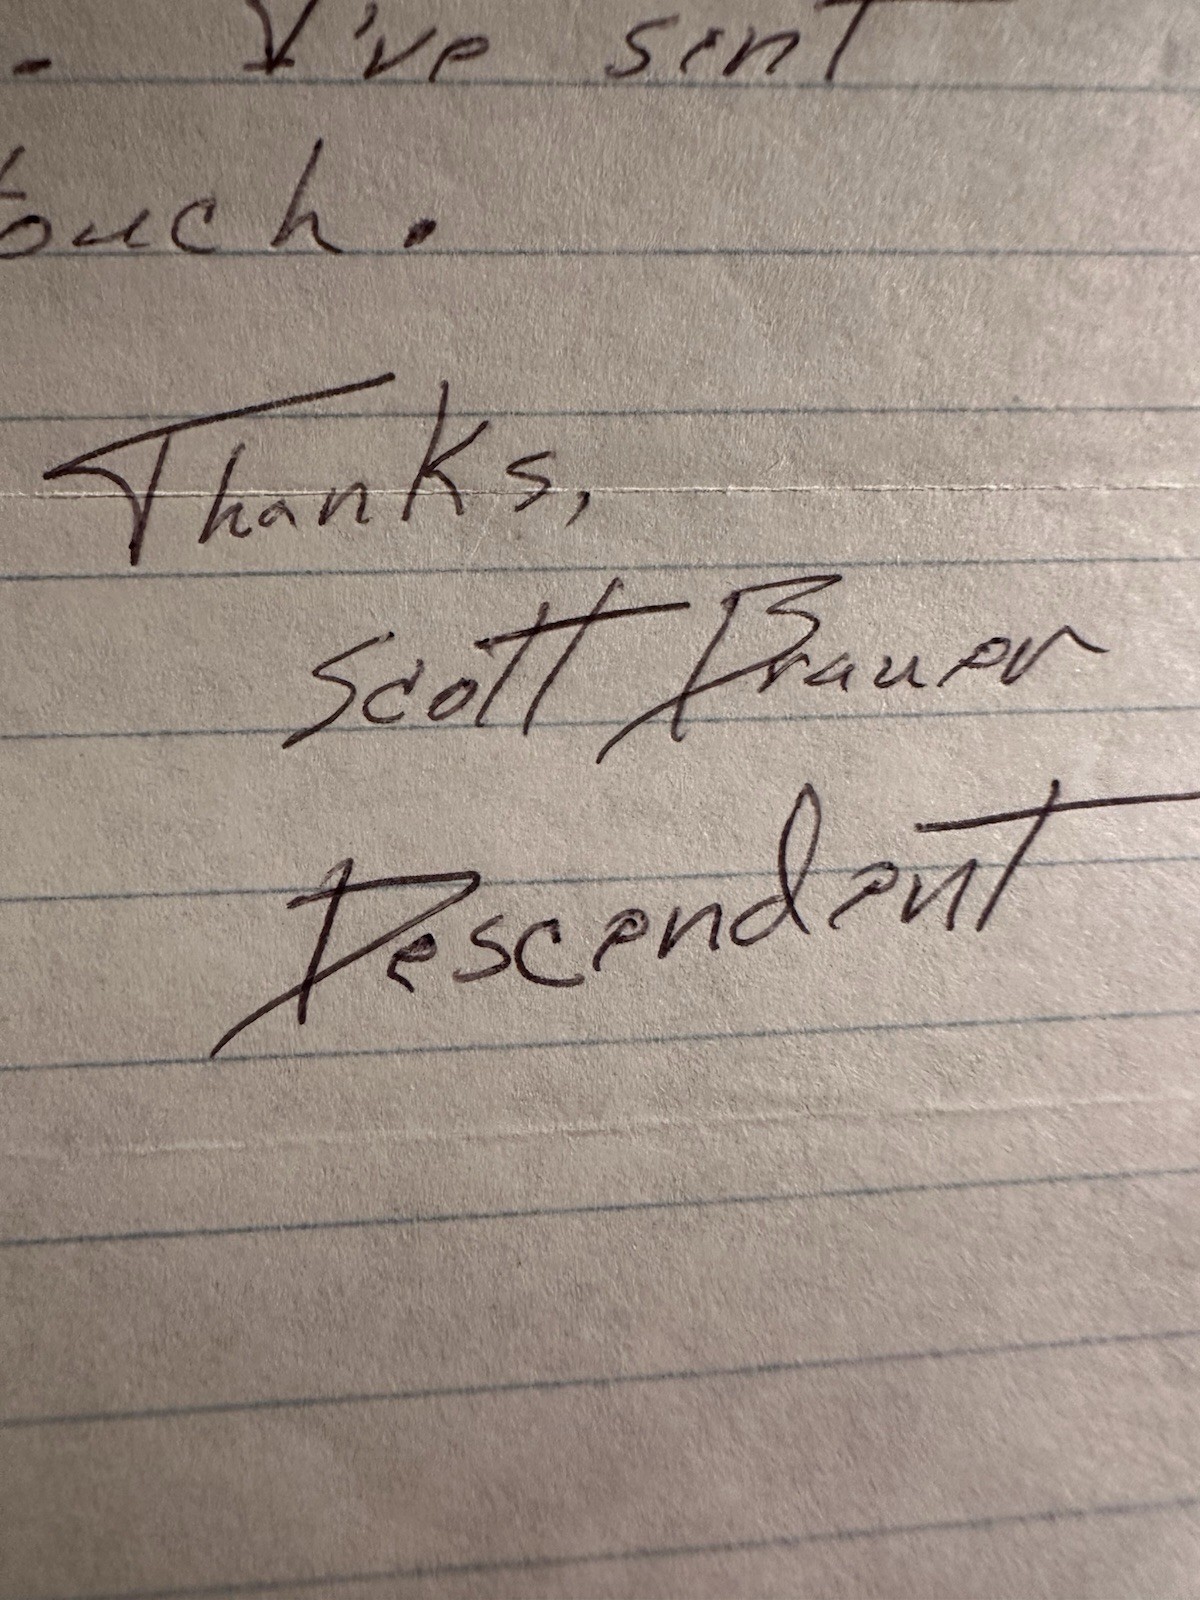 - I've sent
touch.
Thanks,
Scott Brauer
Descendent